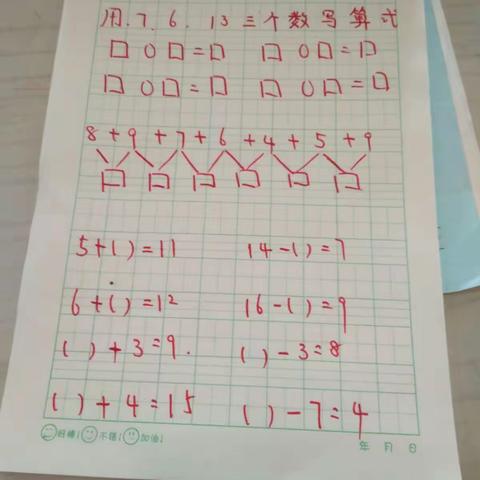 用.7.6.13三个数写算式
□○□=□ □○□=□
□○□=□ □○□=□
8+9+7+6+4+5+9
□ □ □ □ □ □
5+( )=11 14-( )=7
6+( )=12 16-( )=9
( )+3=9. ( )-3=8
( )+4=15 ( )-7=4
好棒! 不错! 加油! 年 月 日